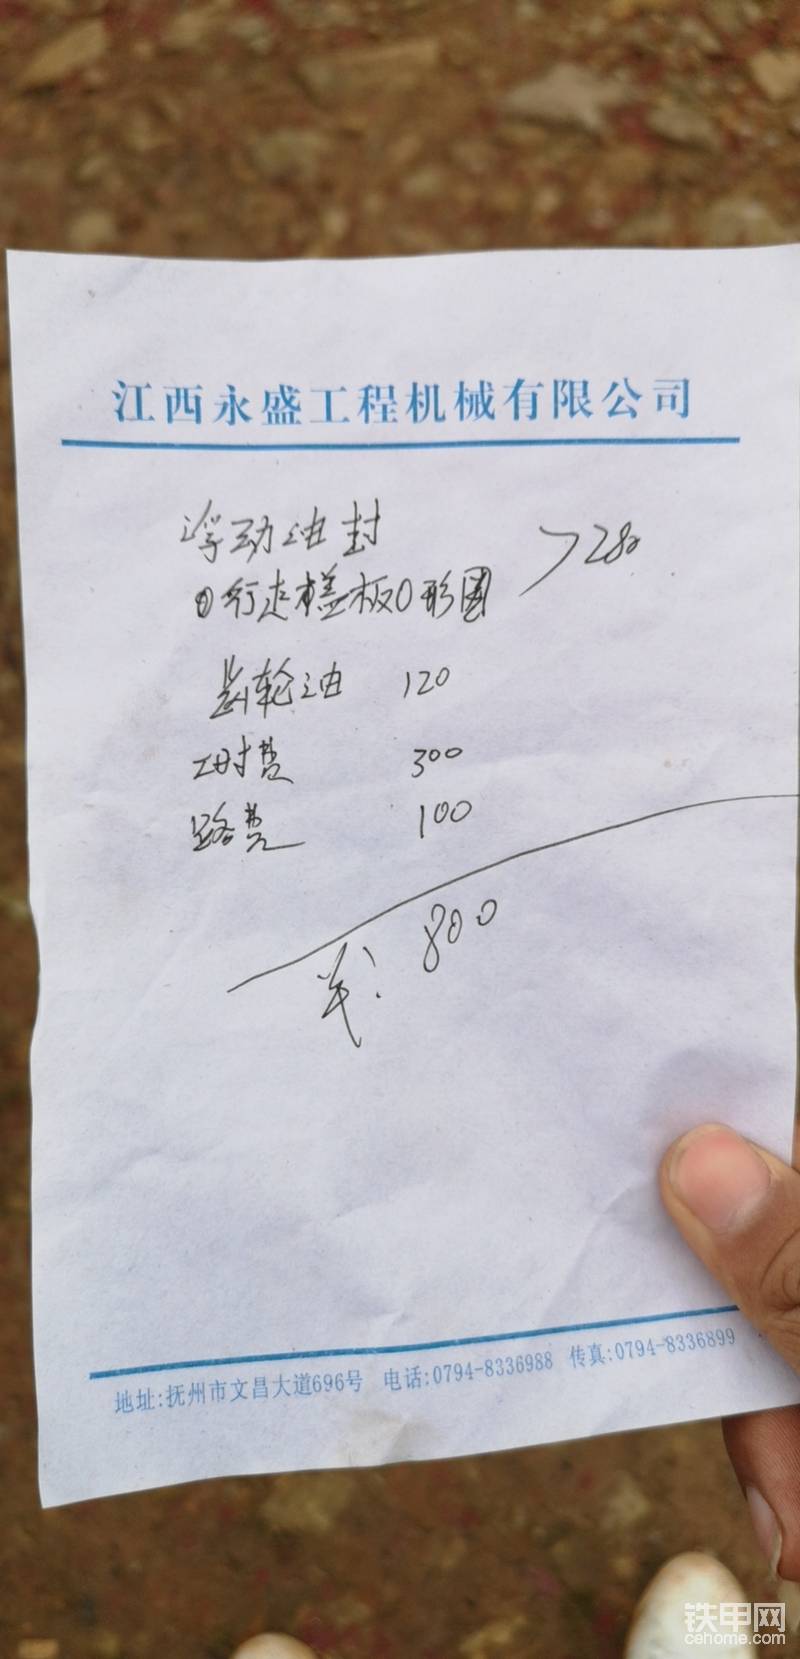 江西永盛工程机械有限公司
浮动油封
行走盖板O形圈 >280
齿轮油 120
工时费 300
路费 100
共: 800
地址:抚州市文昌大道696号 电话:0794-8336988 传真:0794-8336899
铁甲网
cehome.com